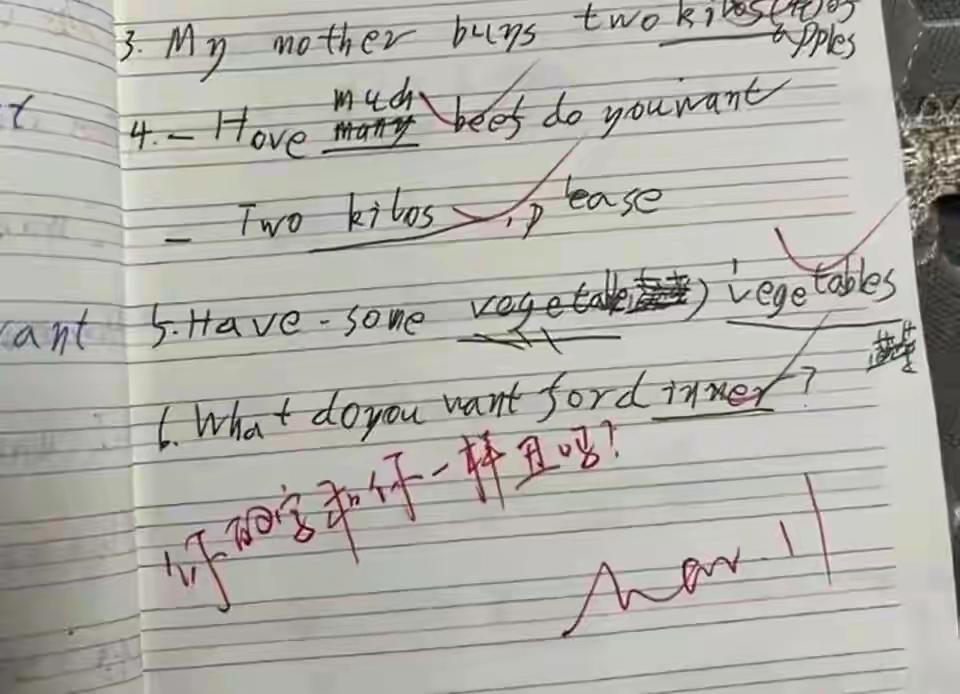 3. My mother buys two kilos of
apples
much
4. - How many beef do you want
- Two kilos, please
ant
5. Have some vegetable) vegetables
6. What do you want for dinner?
你的字和你一样丑吗?
Mar. 11